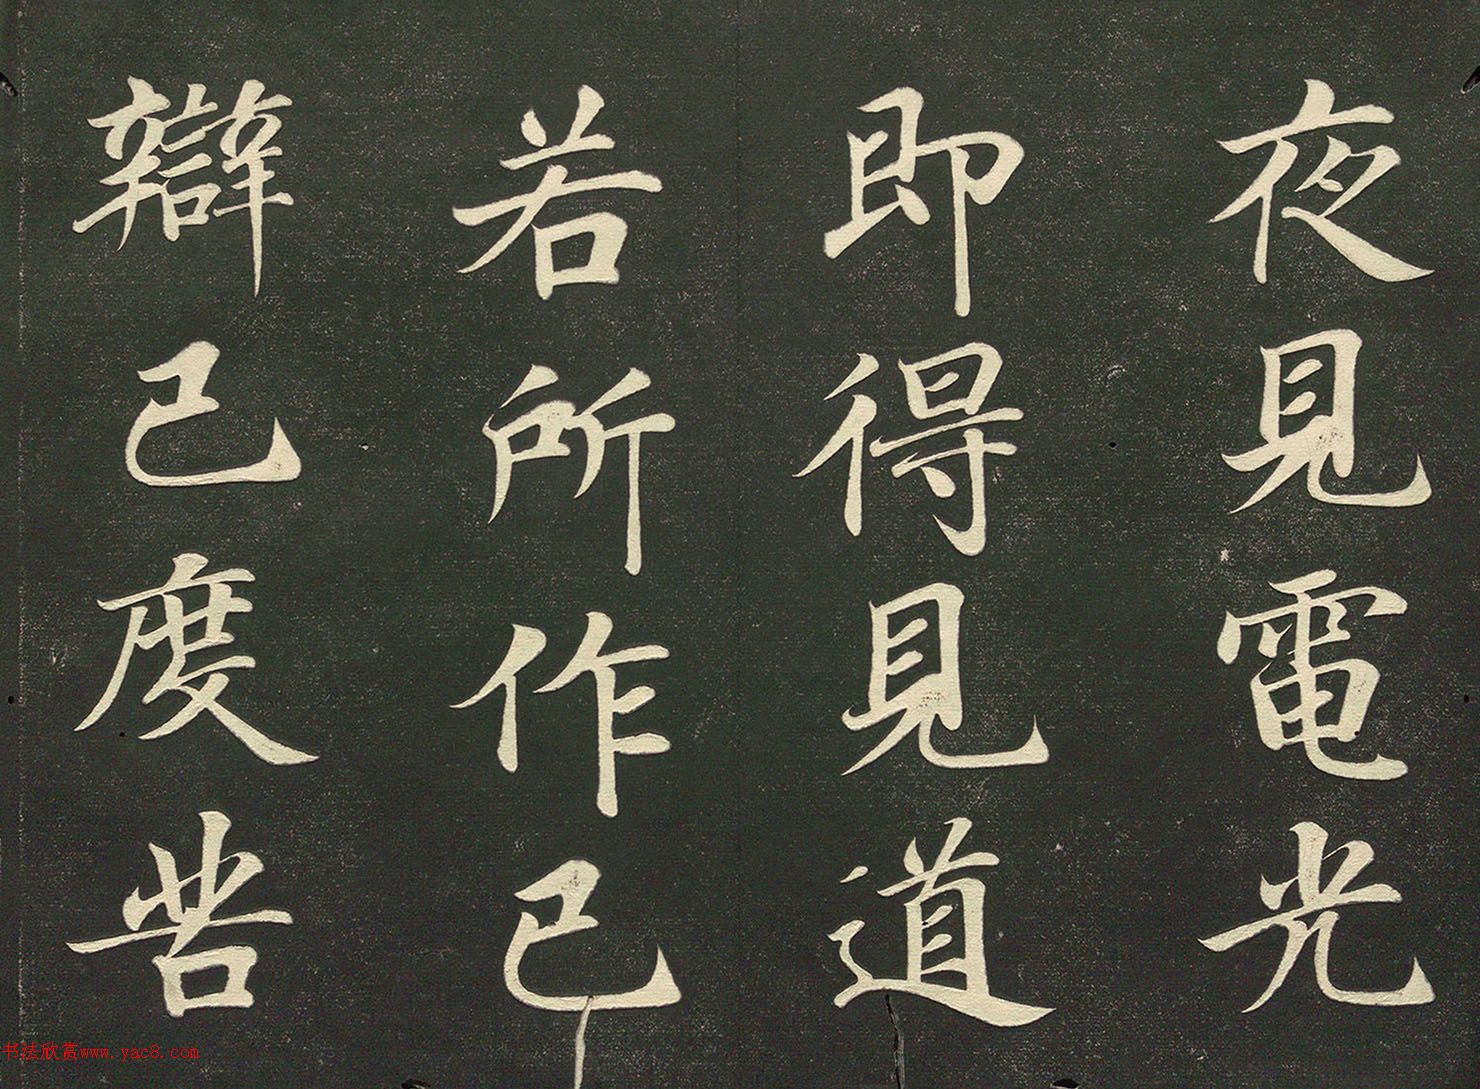 夜見電光
即得見道
若所作已
辯已度苦
书法欣赏www.yac8.com